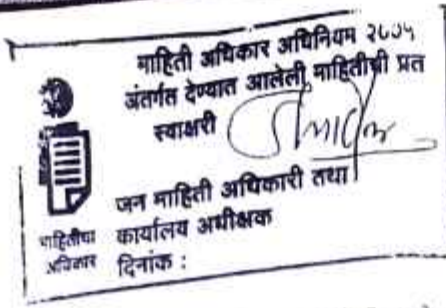 माहिती अधिकार अधिनियम २००५
अंतर्गत देण्यात आलेली माहितीची प्रत
स्वाक्षरी
जन माहिती अधिकारी तथा
कार्यालय अधीक्षक
दिनांक :
माहितीचा
अधिकार